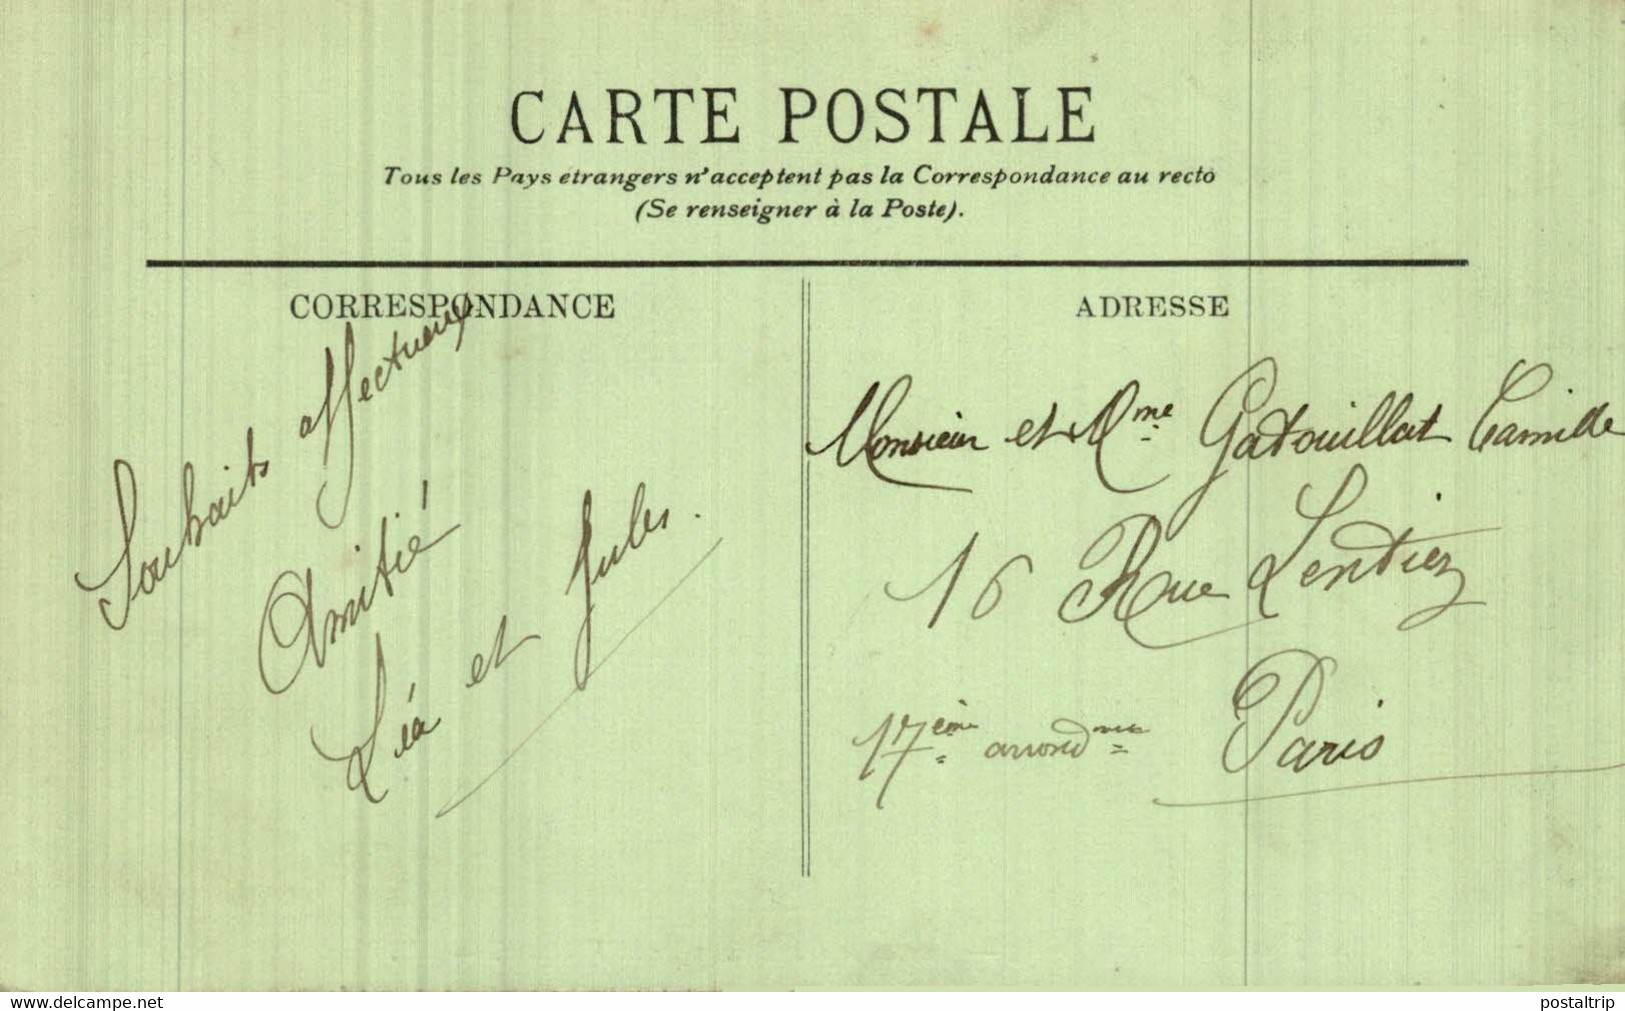 CARTE POSTALE
Tous les Pays etrangers n'acceptent pas la Correspondance au recto
(Se renseigner à la Poste).
CORRESPONDANCE
Souhaits affectueux
Amitié
Léa et Jules.
ADRESSE
Monsieur et Mme Gatouillat Camille
16 Rue Lentiez
17ème arrondme Paris
www.delcampe.net
postaltrip